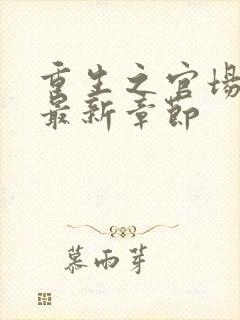 重生之官场
最新章节
慕雨芽